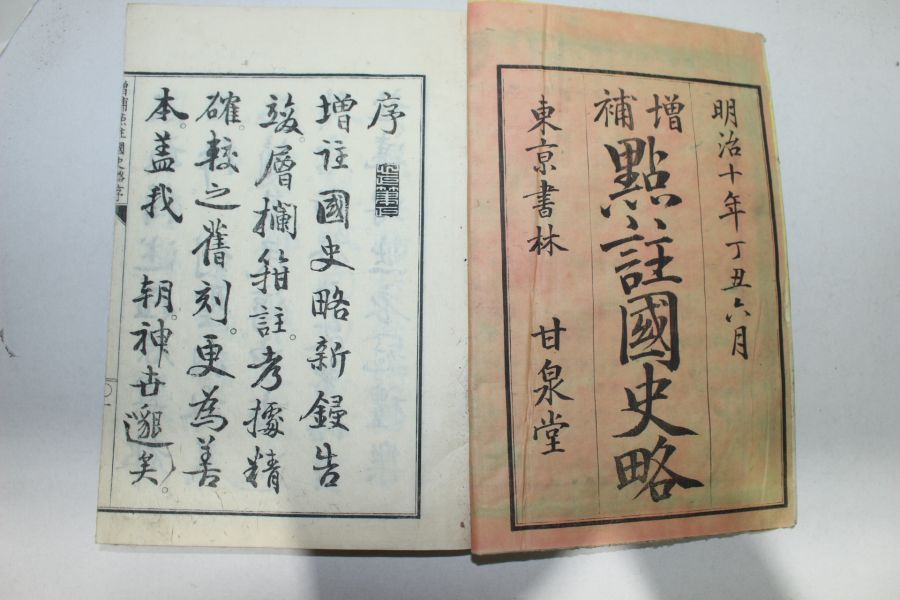 明治十年丁丑六月
增補
點註國史略
東京書林 甘泉堂
序
增註國史略新鋟告
竣層欄籍註考據精
確。較之舊刻。更為善
本。蓋我
朝。神世邈矣。
增補點註國史略序